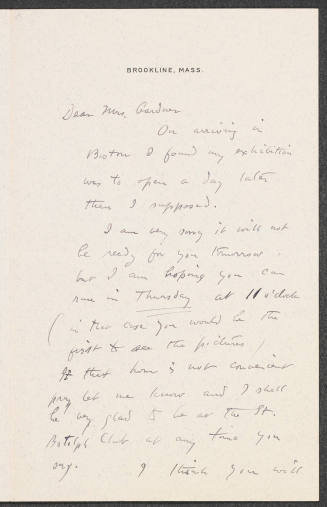 BROOKLINE, MASS.
Dear Mrs. Gardner
On arriving in
Boston I found my exhibition
was to open a day later
than I supposed.
I am very sorry it will not
be ready for you tomorrow.
but I am hoping you can
run in Thursday at 11 o'clock
(in that case you would be the
first to see the pictures)
If that hour is not convenient
pray let me know and I shall
be very glad to be at the St.
Botolph Club at any time you
say. I think you will